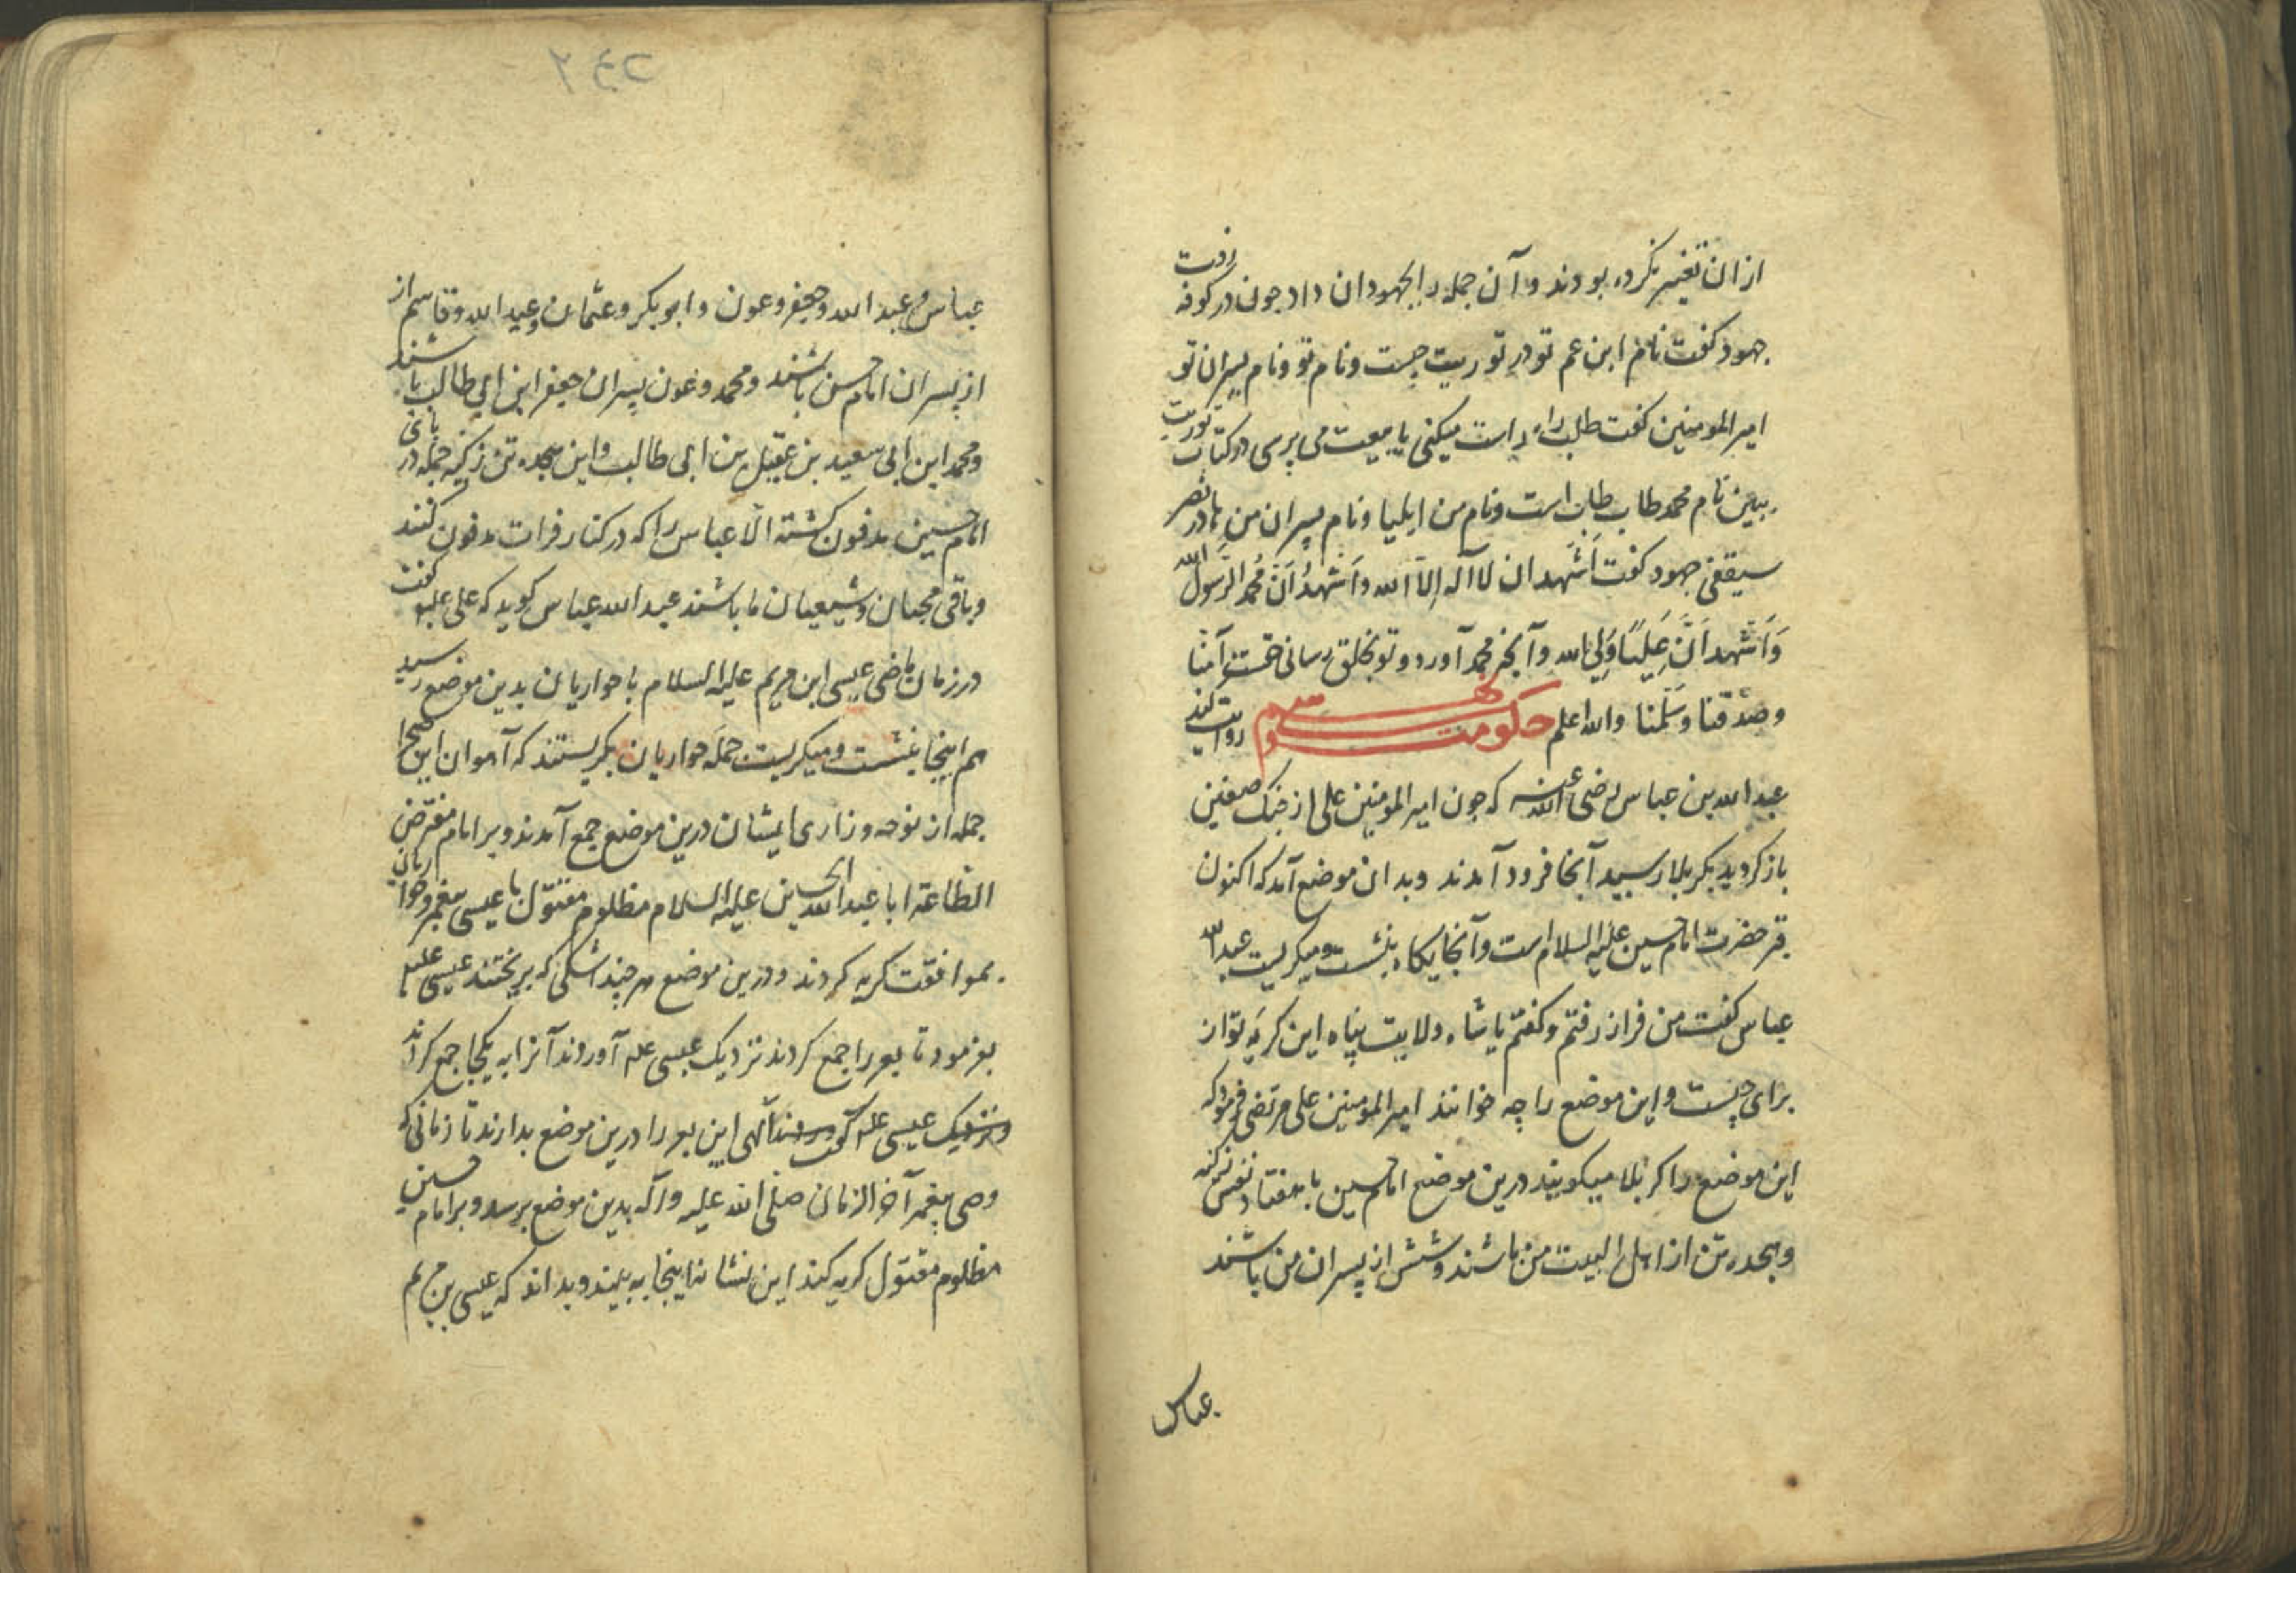 ازان تغییر نکرده بودند و آن جمله را بجهودان داد چون در کوفه رفت
جهود کفت نام ابن عم تو در توریت چیست و نام تو و نام پسران تو
امیر المومنین کفت طلب راه راست میکنی یا می پرسی در کتاب توریت
ببین نام محمد طاب طاب است و نام من ایلیا و نام پسران من
جهود کفت اَشهد ان لا آله اِلاّ الله و اَشهدُ اَنّ مُحمد الرّسول الله
وَ اَشهد اَنَّ عَلیًا وَلِی الله و آنچه محمد آورد و تو بخلق رسانی حقست آمنا
و صَدّقنا و سَلّمنا و الله اعلم حکومت سی و نهم روایت کند
عبد الله بن عباس رضی الله عنه که چون امیر المومنین علی از جنک صفین
باز کردید بکربلا رسید آنجا فرود آمدند و بدان موضع آمد که اکنون
قبر حضرت امام حسین علیه السلام است و آنجایکاه بنشست و میکریست عبد الله
عباس کفت من فراز رفتم و کفتم یا شاه ولایت پناه این کریه تو از
برای چیست و این موضع را چه خوانند امیر المومنین علی مرتضی فرمود که
این موضع را کربلا میکویند درین موضع امام حسین با هفتاد نفس
و هجده تن از اهل البیت من باشند و شش از پسران من باشند
عباس
عباس و عبد الله و جعفر و عون و ابو بکر و عثمان و عبد الله و قاسم از
از پسران امام حسن باشند و محمد و عون پسران جعفر ابن ابی طالب باشند
و محمد ابن ابی سعید بن عقیل بن ابی طالب و این هجده تن جمله در پای
امام حسین مدفون کشته الّا عباس را که در کنار فرات مدفون کنند
و باقی محبان و شیعیان ما باشند عبد الله عباس کوید که علی کفت
در زمان ماضی عیسی ابن مریم علیه السلام با حواریان بدین موضع رسید
هم اینجا بنشست و میکریست جمله حواریان بکریستند که آهوان این صحرا
جمله از نوحه و زاری ایشان درین موضع جمع آمدند و بر امام مفترض
الطاعة ابا عبد الله الحسین علیه السلام مظلوم مقتول با عیسی پیغمبر و حواریان
بموافقت کریه کردند و درین موضع هر چند اشکی که بریختند عیسی علیه
بفرمود تا بعر را جمع کردند نزدیک عیسی علم آوردند آنرا به یکجا جمع کردند
و نزدیک عیسی علم الهی این بعر را درین موضع بدارند تا زمانی که
وصی پیغمبر آخر الزمان صلی الله علیه و آله بدین موضع برسد و بر امام حسین
مظلوم مقتول کریه کند این نشانه اینجا به بیند و بداند که عیسی بن مریم